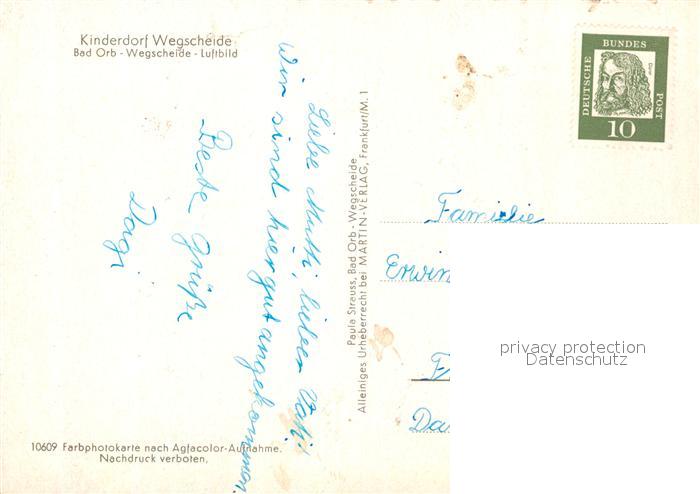 Kinderdorf Wegscheide
Bad Orb - Wegscheide - Luftbild
Liebe Mutti, lieber Vati!
Wir sind hier gut angekommen.
Beste Grüße
Dagi
Paula Strauss, Bad Orb - Wegscheide
Alleiniges Urheberrecht bei MARTIN-VERLAG, Frankfurt/M. 1
DEUTSCHE
BUNDES
POST
Dürer
10
Familie
Erwin
privacy protection
Datenschutz
10609 Farbphotokarte nach Agfacolor-Aufnahme.
Nachdruck verboten.